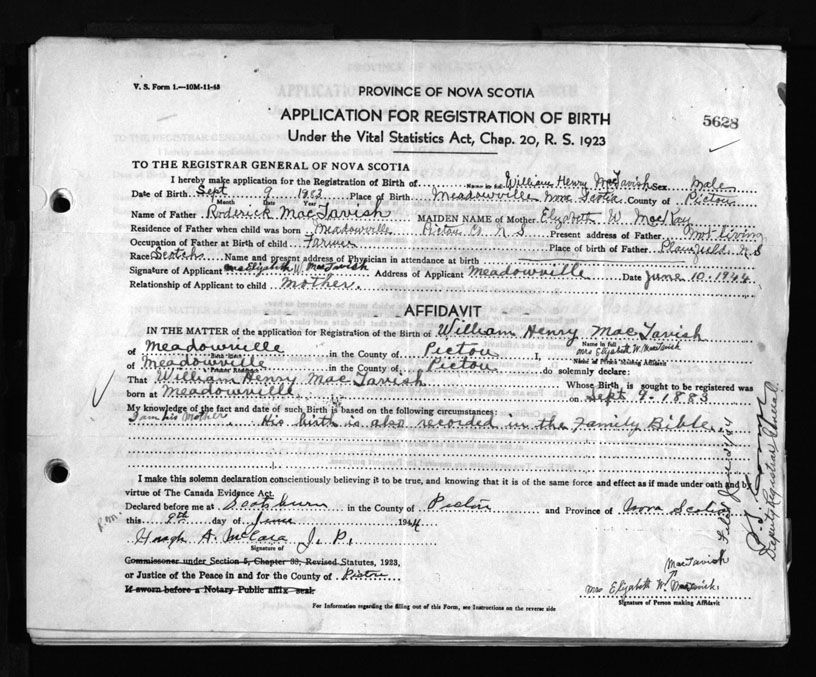 V. S. Form 1.—10M-11-43
PROVINCE OF NOVA SCOTIA
APPLICATION FOR REGISTRATION OF BIRTH
5628
Under the Vital Statistics Act, Chap. 20, R. S. 1923
TO THE REGISTRAR GENERAL OF NOVA SCOTIA
I hereby make application for the Registration of Birth of William Henry MacTavish Sex Male
Name in full
Date of Birth Sept 9 1883 Place of Birth Meadowville Nova Scotia County of Pictou
Month Date Year
Name of Father Roderick MacTavish MAIDEN NAME of Mother Elizabeth W. MacKay
Residence of Father when child was born Meadowville Pictou Co N S Present address of Father Not living
Occupation of Father at Birth of child Farmer Place of birth of Father Plainfield N S
Race Scotch Name and present address of Physician in attendance at birth
Signature of Applicant Mrs Elizabeth W. MacTavish Address of Applicant Meadowville Date June 10. 1944
Relationship of Applicant to child Mother.
AFFIDAVIT
IN THE MATTER of the application for Registration of the Birth of William Henry MacTavish
Name in full
of Meadowville in the County of Pictou I, Mrs Elizabeth W. MacTavish
Name of Person Making Affidavit
of Meadowville in the County of Pictou do solemnly declare:
Present Residence
That William Henry MacTavish Whose Birth is sought to be registered was
born at Meadowville on Sept 9-1883
My knowledge of the fact and date of such Birth is based on the following circumstances:
I am his Mother. His birth is also recorded in the Family Bible.
I make this solemn declaration conscientiously believing it to be true, and knowing that it is of the same force and effect as if made under oath and by
virtue of The Canada Evidence Act.
Declared before me at Scotsburn in the County of Pictou and Province of Nova Scotia
this 9th day of June 1944
Hugh A. McCara J. P.
Signature of
Commissoner under Section 5, Chapter 38, Revised Statutes, 1923,
or Justice of the Peace in and for the County of Pictou
If sworn before a Notary Public affix seal.
MacTavish
Mrs Elizabeth W. MacTavish
Signature of Person making Affidavit
For Information regarding the filling out of this Form, see Instructions on the reverse side
Deputy Registrar General